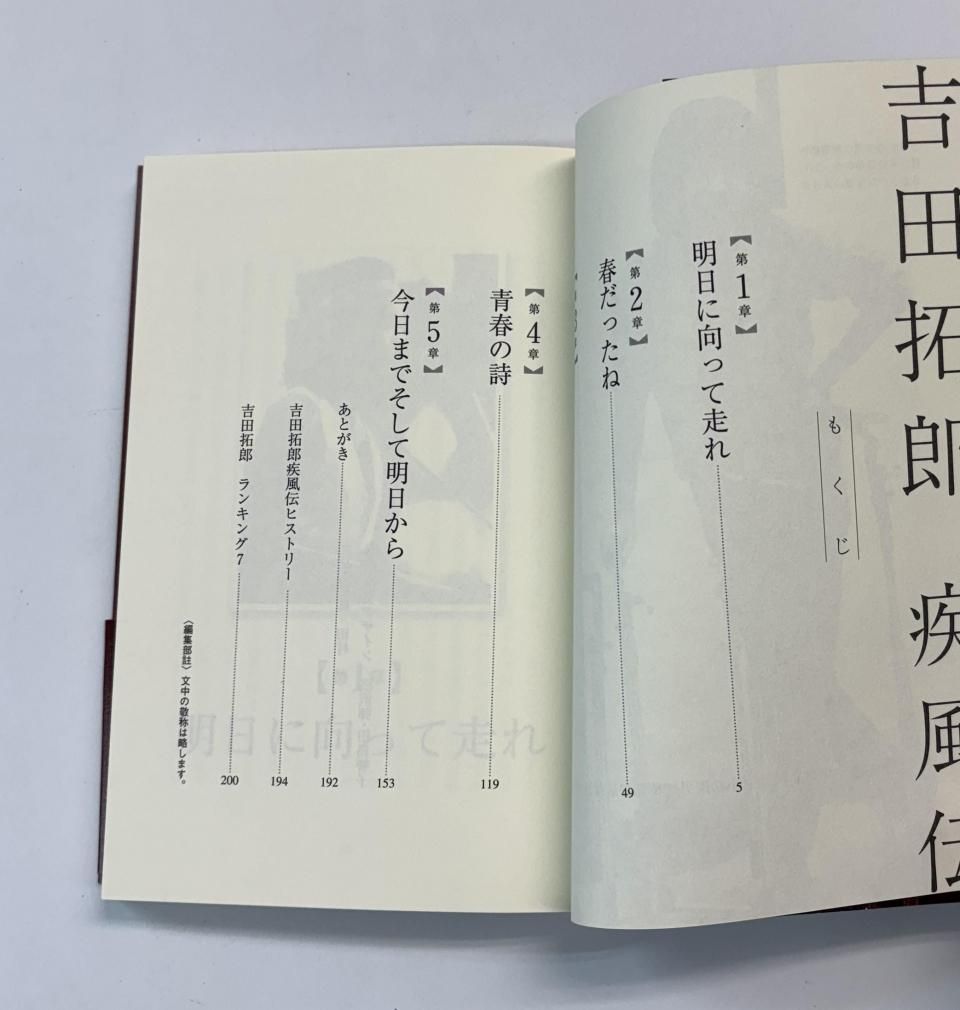 吉田拓郎 疾風伝
もくじ
【第1章】
明日に向って走れ 5
【第2章】
春だったね 49
【第4章】
青春の詩 119
【第5章】
今日までそして明日から 153
あとがき 192
吉田拓郎疾風伝ヒストリー 194
吉田拓郎 ランキング7 200
〈編集部註〉文中の敬称は略します。
明日に向って走れ